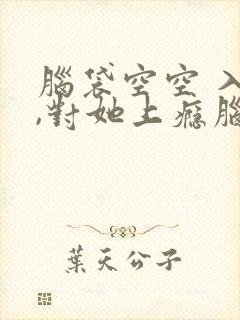 腦袋空空 入
,對她上癮腦
葉天公子